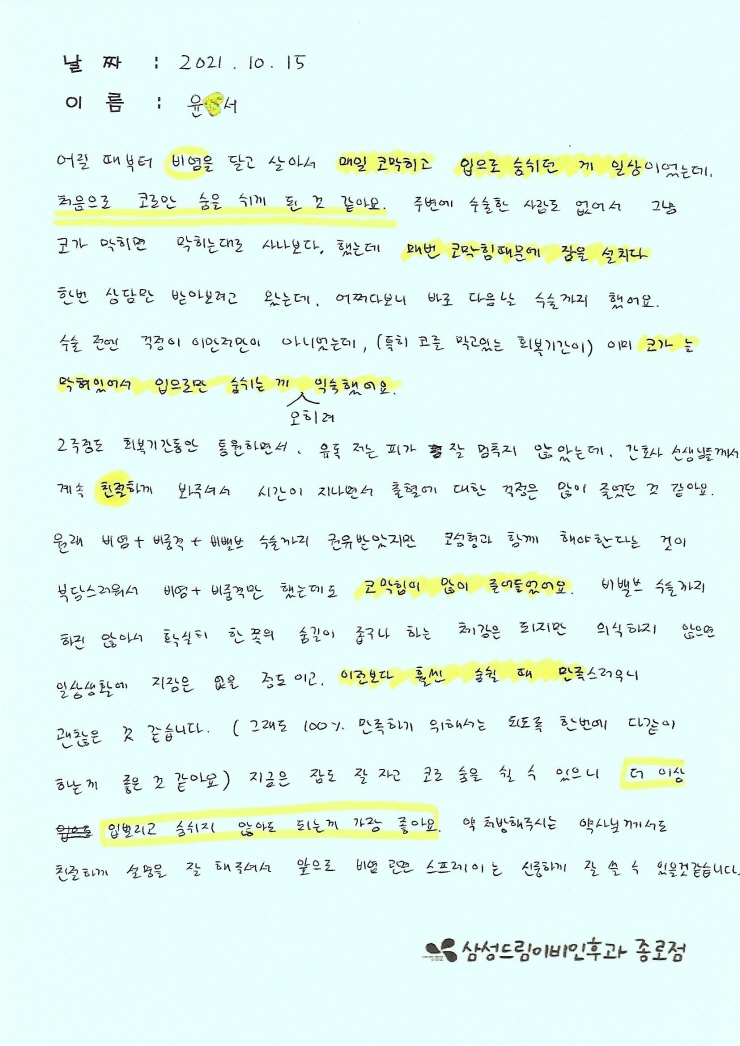 날 짜 : 2021. 10. 15
이 름 : 윤 서
어릴 때부터 비염을 달고 살아서 매일 코막히고 입으로 숨쉬던 게 일상이었는데,
처음으로 코로만 숨을 쉬게 된 것 같아요. 주변에 수술한 사람도 없어서 그냥
코가 막히면 막히는대로 사나보다, 했는데 매번 코막힘때문에 잠을 설치다
한번 상담만 받아보려고 왔는데, 어쩌다보니 바로 다음날 수술까지 했어요.
수술 전엔 걱정이 이만저만이 아니었는데, (특히 코를 막고있는 회복기간이) 이미 코가 늘
막혀있어서 입으로만 숨쉬는 게 오히려 익숙했어요.
2주정도 회복기간동안 통원하면서, 유독 저는 피가 잘 멈추지 않았는데, 간호사 선생님들께서
계속 친절하게 봐주셔서 시간이 지나면서 출혈에 대한 걱정은 많이 줄었던 것 같아요.
원래 비염+비중격+비밸브 수술까지 권유받았지만 코성형과 함께 해야한다는 것이
부담스러워서 비염+비중격만 했는데도 코막힘이 많이 줄어들었어요. 비밸브 수술까지
하진 않아서 확실히 한 쪽의 숨길이 좁구나 하는 체감은 되지만 의식하지 않으면
일상생활에 지장은 없을 정도이고, 이전보다 훨씬 숨쉴 때 만족스러우니
괜찮은 것 같습니다. (그래도 100% 만족하기 위해서는 되도록 한번에 다같이
하는게 좋은 것 같아요) 지금은 잠도 잘 자고 코로 숨을 쉴 수 있으니 더 이상
입벌리고 숨쉬지 않아도 되는게 가장 좋아요. 약 처방해주시는 약사님께서도
친절하게 설명을 잘 해주셔서 앞으로 비염 관련 스프레이는 신중하게 잘 쓸 수 있을것같습니다.
삼성드림이비인후과 종로점